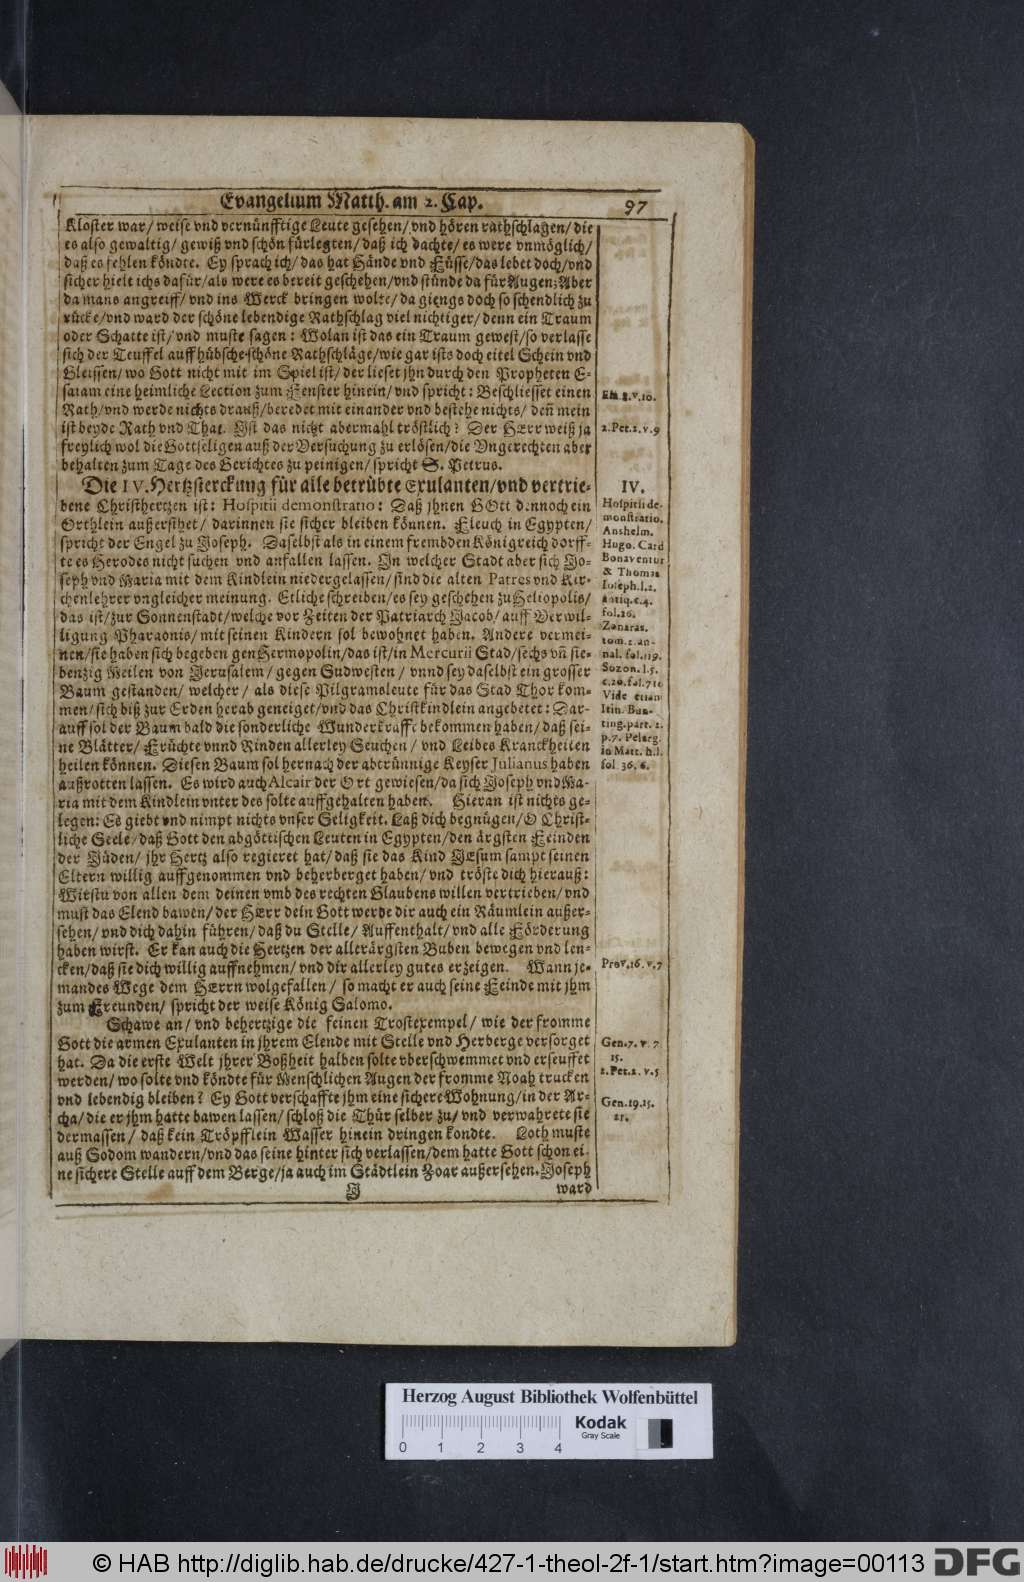 Evangelium Matth. am 2. Cap. 97
Kloster war/ weise vnd vernünfftige Leute gesehen/ vnd hören rathschlagen/ die
es also gewaltig/ gewiß vnd schön fürlegten/ daß ich dachte/ es were vnmöglich/
daß es fehlen köndte. Ey sprach ich/ das hat Hände vnd Füsse/ das lebet doch/ vnd
sicher hielt ichs dafür/ als were es bereit geschehen/ vnd stünde da für Augen; Aber
da mans angreiff/ vnd ins Werck bringen wolte/ da giengs doch so schendlich zu
rücke/ vnd ward der schöne lebendige Rathschlag viel nichtiger/ denn ein Traum
oder Schatte ist/ vnd muste sagen: Wolan ist das ein Traum gewest/ so verlasse
sich der Teuffel auff hübsche-schöne Rathschläge/ wie gar ists doch eitel Schein vnd
Gleissen/ wo Gott nicht mit im Spiel ist/ der lieset jhn durch den Propheten E-
saiam eine heimliche Lection zum Fenster hinein/ vnd spricht: Beschliesset einen
Rath/ vnd werde nichts drauß/ beredet mit einander vnd bestehe nichts/ deñ mein
ist beyde Rath vnd That. Ist das nicht abermahl tröstlich? Der HErr weiß ja
freylich wol die Gottseligen auß der Versuchung zu erlösen/ die Vngerechten aber
behalten zum Tage des Gerichtes zu peinigen/ spricht S. Petrus.
Die IV. Hertzsterckung für alle betrübte Exulanten/ vnd vertrie-
bene Christhertzen ist: Hospitii demonstratio: Daß jhnen GOtt dennoch ein
Orthlein außersihet/ darinnen sie sicher bleiben können. Fleuch in Egypten/
spricht der Engel zu Joseph. Daselbst als in einem frembden Königreich dorff-
te es Herodes nicht suchen vnd anfallen lassen. In welcher Stadt aber sich Jo-
seph vnd Maria mit dem Kindlein niedergelassen/ sind die alten Patres vnd Kir-
chenlehrer vngleicher meinung. Etliche schreiben/ es sey geschehen zu Heliopolis/
das ist/ zur Sonnenstadt/ welche vor Zeiten der Patriarch Jacob/ auff Verwil-
ligung Pharaonis/ mit seinen Kindern sol bewohnet haben. Andere vermei-
nen/ sie haben sich begeben gen Hermopolin/ das ist/ in Mercurii Stad/ sechs vñ sie-
benzig Meilen von Jerusalem/ gegen Sudwesten/ vnnd sey daselbst ein grosser
Baum gestanden/ welcher/ als diese Pilgramsleute für das Stad Thor kom-
men/ sich biß zur Erden herab geneiget/ vnd das Christkindlein angebetet: Dar-
auff sol der Baum bald die sonderliche Wunderkrafft bekommen haben/ daß sei-
ne Blätter/ Früchte vnnd Rinden allerley Seuchen/ vnd Leibes Kranckheiten
heilen können. Diesen Baum sol hernach der abtrünnige Keyser Julianus haben
außrotten lassen. Es wird auch Alcair der Ort gewiesen/ da sich Joseph vnd Ma-
ria mit dem Kindlein vnter des solte auffgehalten haben. Hieran ist nichts ge-
legen: Es giebt vnd nimpt nichts vnser Seligkeit. Laß dich begnügen/ O Christ-
liche Seele/ daß Gott den abgöttischen Leuten in Egypten/ den ärgsten Feinden
der Jüden/ jhr Hertz also regieret hat/ daß sie das Kind JEsum sampt seinen
Eltern willig auffgenommen vnd beherberget haben/ vnd tröste dich hierauß:
Wirstu von allen dem deinen vmb des rechten Glaubens willen vertrieben/ vnd
must das Elend bawen/ der HErr dein Gott werde dir auch ein Räumlein außer-
sehen/ vnd dich dahin führen/ daß du Stelle/ Auffenthalt/ vnd alle Förderung
haben wirst. Er kan auch die Hertzen der allerärgsten Buben bewegen vnd len-
cken/ daß sie dich willig auffnehmen/ vnd dir allerley gutes erzeigen. Wann je-
mandes Wege dem HErrn wolgefallen/ so macht er auch seine Feinde mit jhm
zum Freunden/ spricht der weise König Salomo.
Schawe an/ vnd behertzige die feinen Trostexempel/ wie der fromme
Gott die armen Exulanten in jhrem Elende mit Stelle vnd Herberge versorget
hat. Da die erste Welt jhrer Boßheit halben solte vberschwemmet vnd erseuffet
werden/ wo solte vnd köndte für Menschlichen Augen der fromme Noah trucken
vnd lebendig bleiben? Ey Gott verschaffte jhm eine sichere Wohnung/ in der Ar-
cha/ die er jhm hatte bawen lassen/ schloß die Thür selber zu/ vnd verwahrete sie
dermassen/ daß kein Tröpfflein Wasser hinein dringen kondte. Loth muste
auß Sodom wandern/ vnd das seine hinter sich verlassen/ dem hatte Gott schon ei-
ne sichere Stelle auff dem Berge/ ja auch im Städtlein Zoar außersehen. Joseph
J ward
Esa. 8. v. 10.
2. Pet. 2. v. 9
IV.
Hospitii de-
monstratio.
Anshelm.
Hugo. Card
Bonaventur
& Thomas
Ioseph. l. 2.
antiq. c. 4.
fol. 26.
Zonaras.
tom. 1. an-
nal. fol. 119.
Sozon. l. 5.
c. 20. fol. 710
Vide etian
Itin. Bun-
ting. part. 2.
p. 7. Pelarg.
in Matt. h. l.
fol. 36. 6.
Prov. 16. v. 7
Gen. 7. v. 7
15.
2. Pet. 2. v. 5
Gen. 19. 15.
21.
Herzog August Bibliothek Wolfenbüttel
0 1 2 3 4
Kodak
Gray Scale
© HAB http://diglib.hab.de/drucke/427-1-theol-2f-1/start.htm?image=00113
DFG